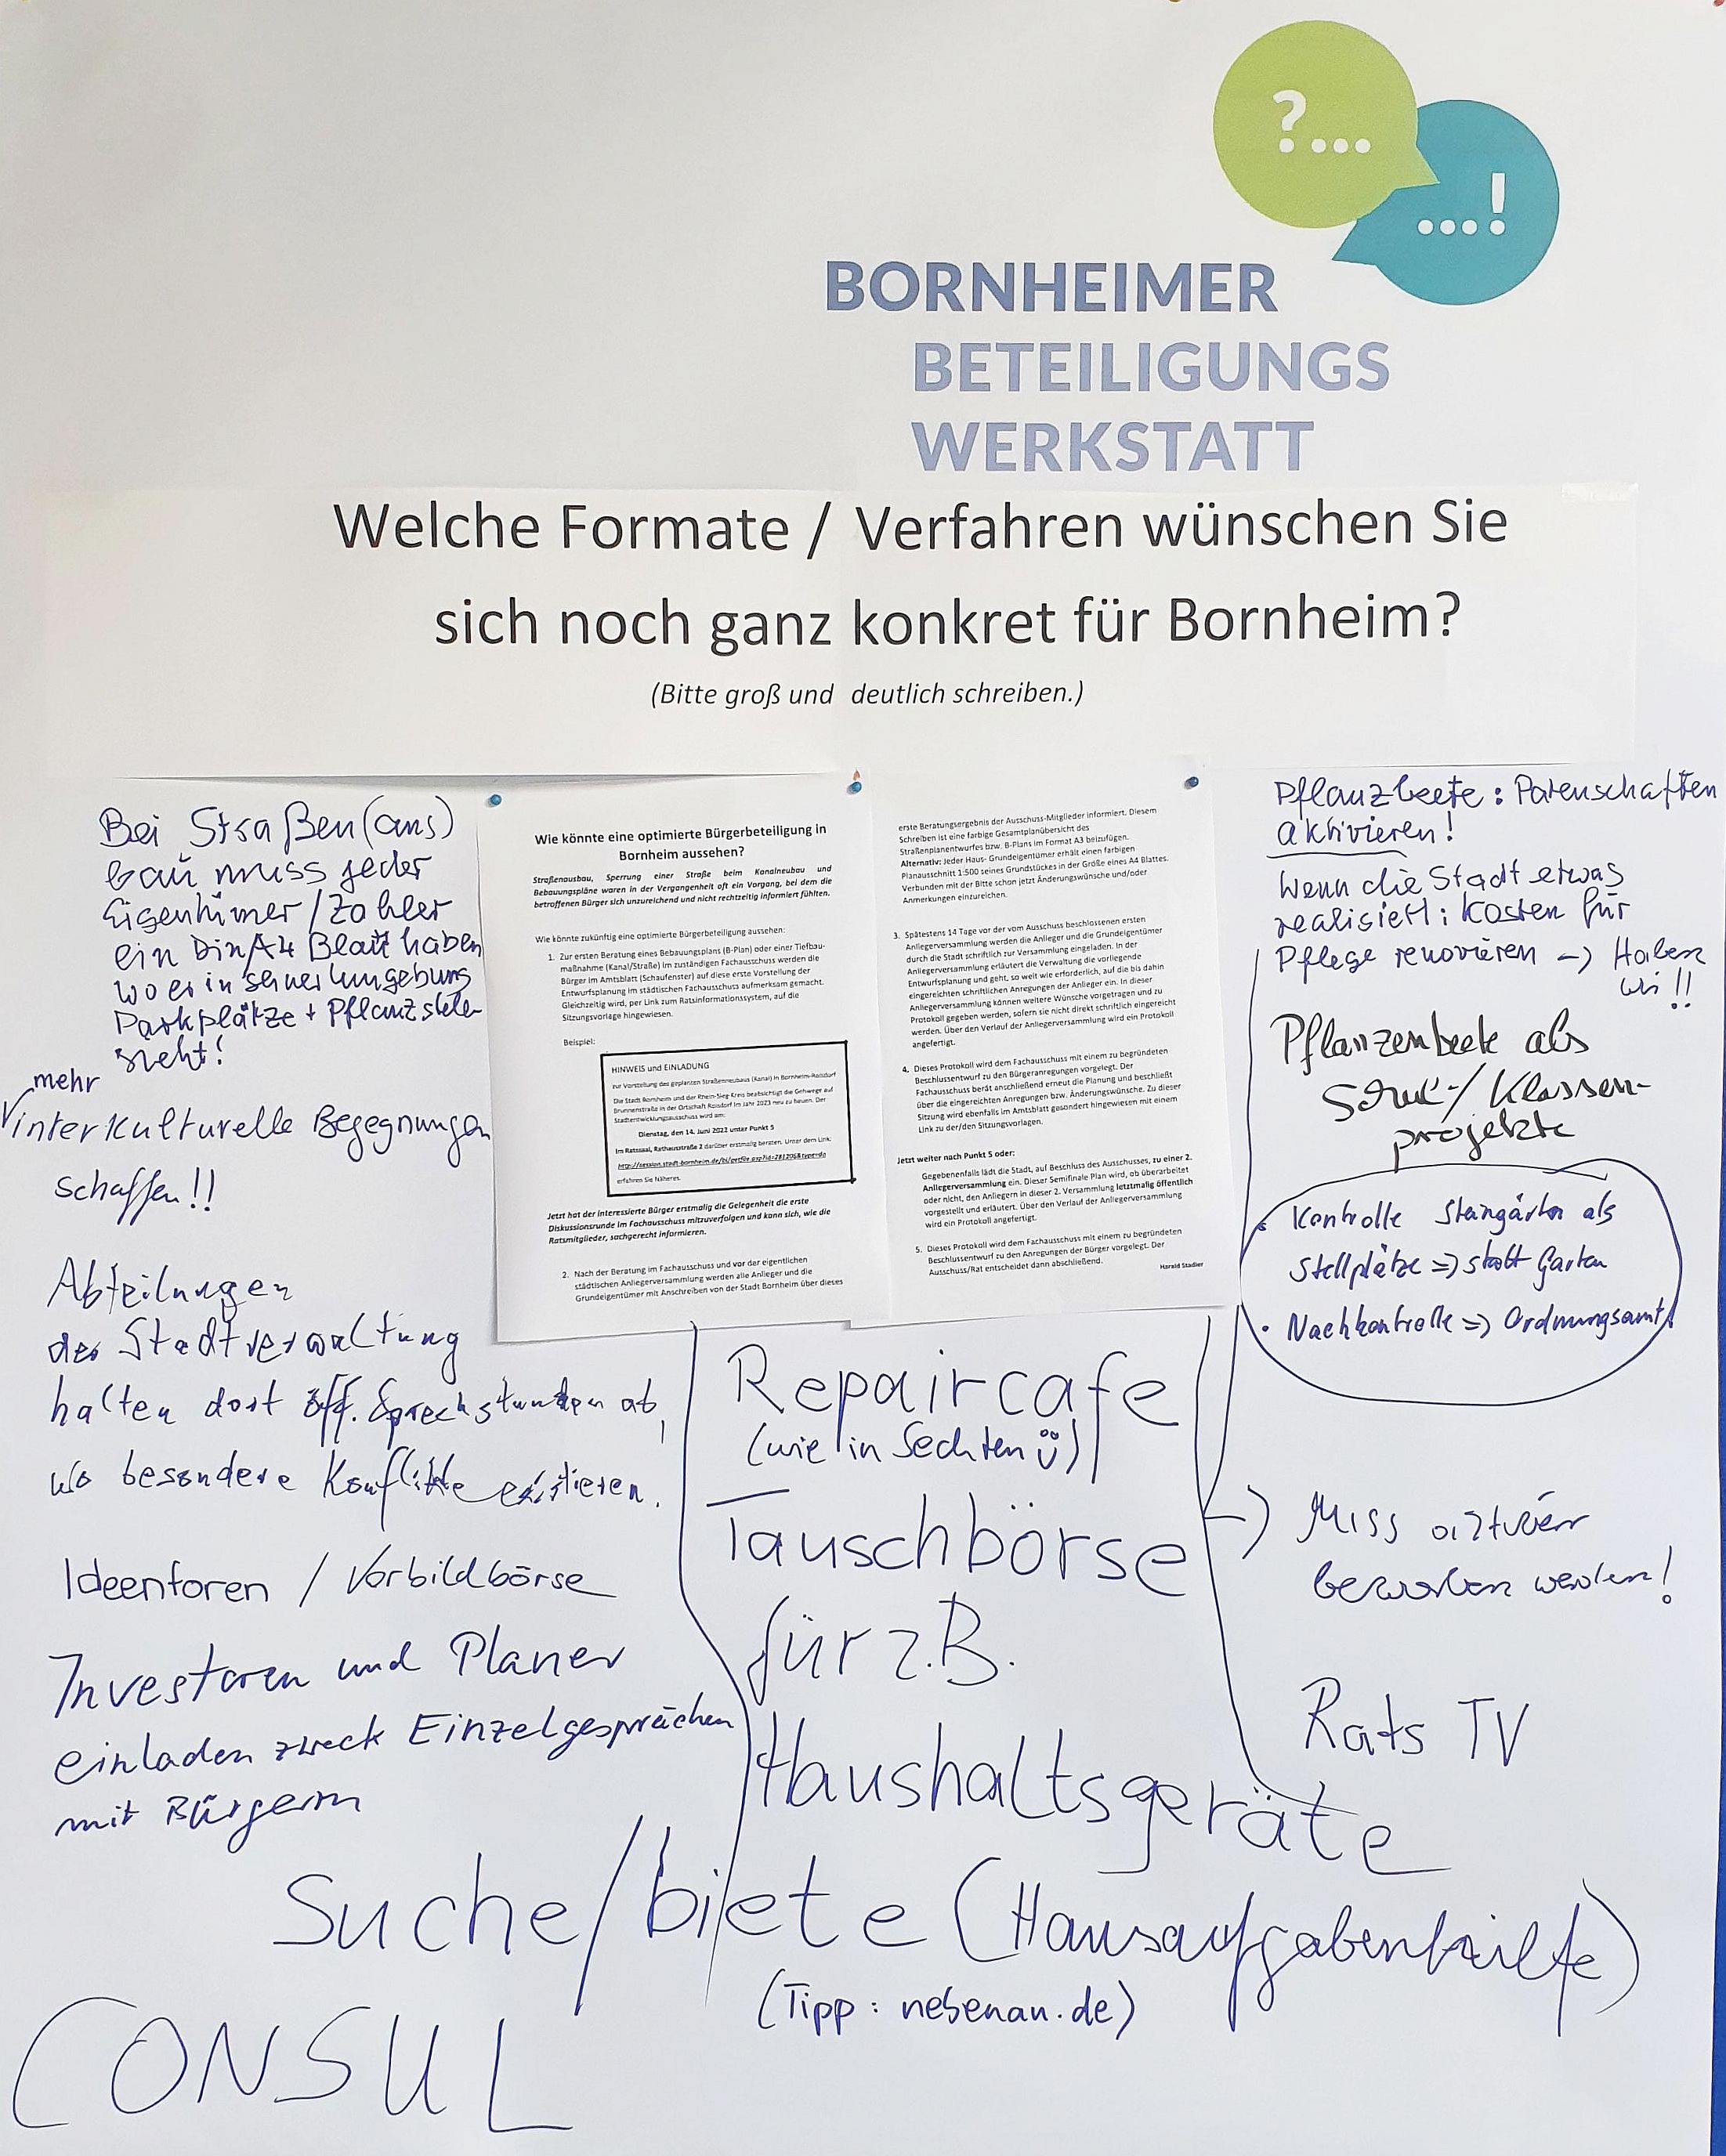 ?...
...!
BORNHEIMER
BETEILIGUNGS
WERKSTATT
Welche Formate / Verfahren wünschen Sie
sich noch ganz konkret für Bornheim?
(Bitte groß und deutlich schreiben.)
Bei Straßen(aus)
bau muss jeder
Eigenhümer/Zahler
ein DinA4 Blatt haben
wo er in seiner Umgebung
Parkplätze + Pflanzstelen
sieht!
mehr
interkulturelle Begegnungen
schaffen!!
Abteilungen
der Stadtverwaltung
halten dort öff. Sprechstunden ab,
wo besondere Konflikte existieren.
Ideenforen / Vorbildbörse
Investoren und Planer
einladen zweck Einzelgesprächen
mit Bürgern
Wie könnte eine optimierte Bürgerbeteiligung in
Bornheim aussehen?
Straßenausbau, Sperrung einer Straße beim Kanalneubau und
Bebauungspläne waren in der Vergangenheit oft ein Vorgang, bei dem die
betroffenen Bürger sich unzureichend und nicht rechtzeitig informiert fühlten.
Wie könnte zukünftig eine optimierte Bürgerbeteiligung aussehen:
1. Zur ersten Beratung eines Bebauungsplans (B-Plan) oder einer Tiefbau-
maßnahme (Kanal/Straße) im zuständigen Fachausschuss werden die
Bürger im Amtsblatt (Schaufenster) auf diese erste Vorstellung der
Entwurfsplanung im städtischen Fachausschuss aufmerksam gemacht.
Gleichzeitig wird, per Link zum Ratsinformationssystem, auf die
Sitzungsvorlage hingewiesen.
Beispiel:
HINWEIS und EINLADUNG
zur Vorstellung des geplanten Straßenneubaus (Kanal) in Bornheim-Roisdorf
Die Stadt Bornheim und der Rhein-Sieg Kreis beabsichtigt die Gehwege auf
Brunnenstraße in der Ortschaft Roisdorf im Jahr 2023 neu zu bauen. Der
Stadtentwicklungsausschuss wird am:
Dienstag, den 14. Juni 2022 unter Punkt 5
im Ratssaal, Rathausstraße 2 darüber erstmalig beraten. Unter dem Link:
erfahren Sie Näheres.
Jetzt hat der interessierte Bürger erstmalig die Gelegenheit die erste
Diskussionsrunde im Fachausschuss mitzuverfolgen und kann sich, wie die
Ratsmitglieder, sachgerecht informieren.
2. Nach der Beratung im Fachausschuss und vor der eigentlichen
städtischen Anliegerversammlung werden alle Anlieger und die
Grundeigentümer mit Anschreiben von der Stadt Bornheim über dieses
erste Beratungsergebnis der Ausschuss-Mitglieder informiert. Diesem
Schreiben ist eine farbige Gesamtplanübersicht des
Straßenplanentwurfes bzw. B-Plans im Format A3 beizufügen.
Alternativ: Jeder Haus- Grundeigentümer erhält einen farbigen
Planausschnitt 1:500 seines Grundstückes in der Größe eines A4 Blattes.
Verbunden mit der Bitte schon jetzt Änderungswünsche und/oder
Anmerkungen einzureichen.
3. Spätestens 14 Tage vor der vom Ausschuss beschlossenen ersten
Anliegerversammlung werden die Anlieger und die Grundeigentümer
durch die Stadt schriftlich zur Versammlung eingeladen. In der
Anliegerversammlung erläutert die Verwaltung die vorliegende
Entwurfsplanung und geht, so weit wie erforderlich, auf die bis dahin
eingereichten schriftlichen Anregungen der Anlieger ein. In dieser
Anliegerversammlung können weitere Wünsche vorgetragen und zu
Protokoll gegeben werden, sofern sie nicht direkt schriftlich eingereicht
werden. Über den Verlauf der Anliegerversammlung wird ein Protokoll
angefertigt.
4. Dieses Protokoll wird dem Fachausschuss mit einem zu begründeten
Beschlussentwurf zu den Bürgeranregungen vorgelegt. Der
Fachausschuss berät anschließend erneut die Planung und beschließt
über die eingereichten Anregungen bzw. Änderungswünsche. Zu dieser
Sitzung wird ebenfalls im Amtsblatt gesondert hingewiesen mit einem
Link zu der/den Sitzungsvorlagen.
Jetzt weiter nach Punkt 5 oder:
Gegebenenfalls lädt die Stadt, auf Beschluss des Ausschusses, zu einer 2.
Anliegerversammlung ein. Dieser Semifinale Plan wird, ob überarbeitet
oder nicht, den Anliegern in dieser 2. Versammlung letztmalig öffentlich
vorgestellt und erläutert. Über den Verlauf der Anliegerversammlung
wird ein Protokoll angefertigt.
5. Dieses Protokoll wird dem Fachausschuss mit einem zu begründeten
Beschlussentwurf zu den Anregungen der Bürger vorgelegt. Der
Ausschuss/Rat entscheidet dann abschließend.
Harald Stadler
Pflanzbeete: Patenschaften
aktivieren!
Wenn die Stadt etwas
realisiert: Kosten für
Pflege renovieren -> Haben
wir!!
Pflanzenbeete als
Schul-/Klassen-
projekte
• Kontrolle Steingärten als
Stellplätze => statt Garten
• Nachkontrolle => Ordnungsamt!
Repaircafe
(wie in Sechtem ü)
Tauschbörse
für z.B.
Haushaltsgeräte
-> Miss
beworben werden!
Rats TV
Suche/biete (Hausaufgabenhilfe)
(Tipp: nebenan.de)
CONSUL